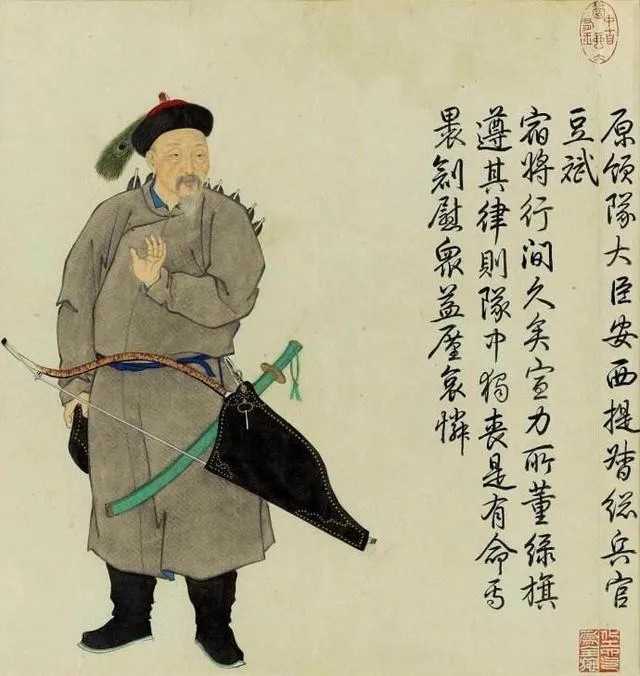 原領隊大臣安西提督總兵官
豆斌
宿將行間久矣宣力所董綠旗
遵其律則隊中獨喪是有命焉
裹創慰衆益廑哀憐